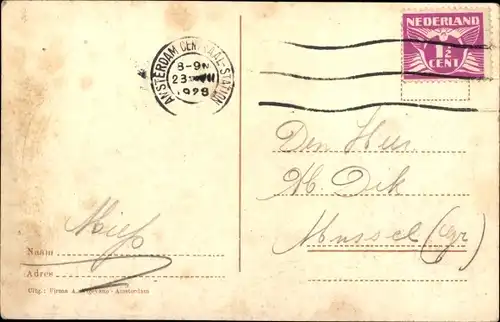 NEDERLAND
1½
CENT
AMSTERDAM CENTRAAL-STATION
8-9N
23 VII
1928
Den Heer
H. Dik
Mussel (Gr)
Miep
Naam
Adres
Uitg.: Firma A. - Amsterdam